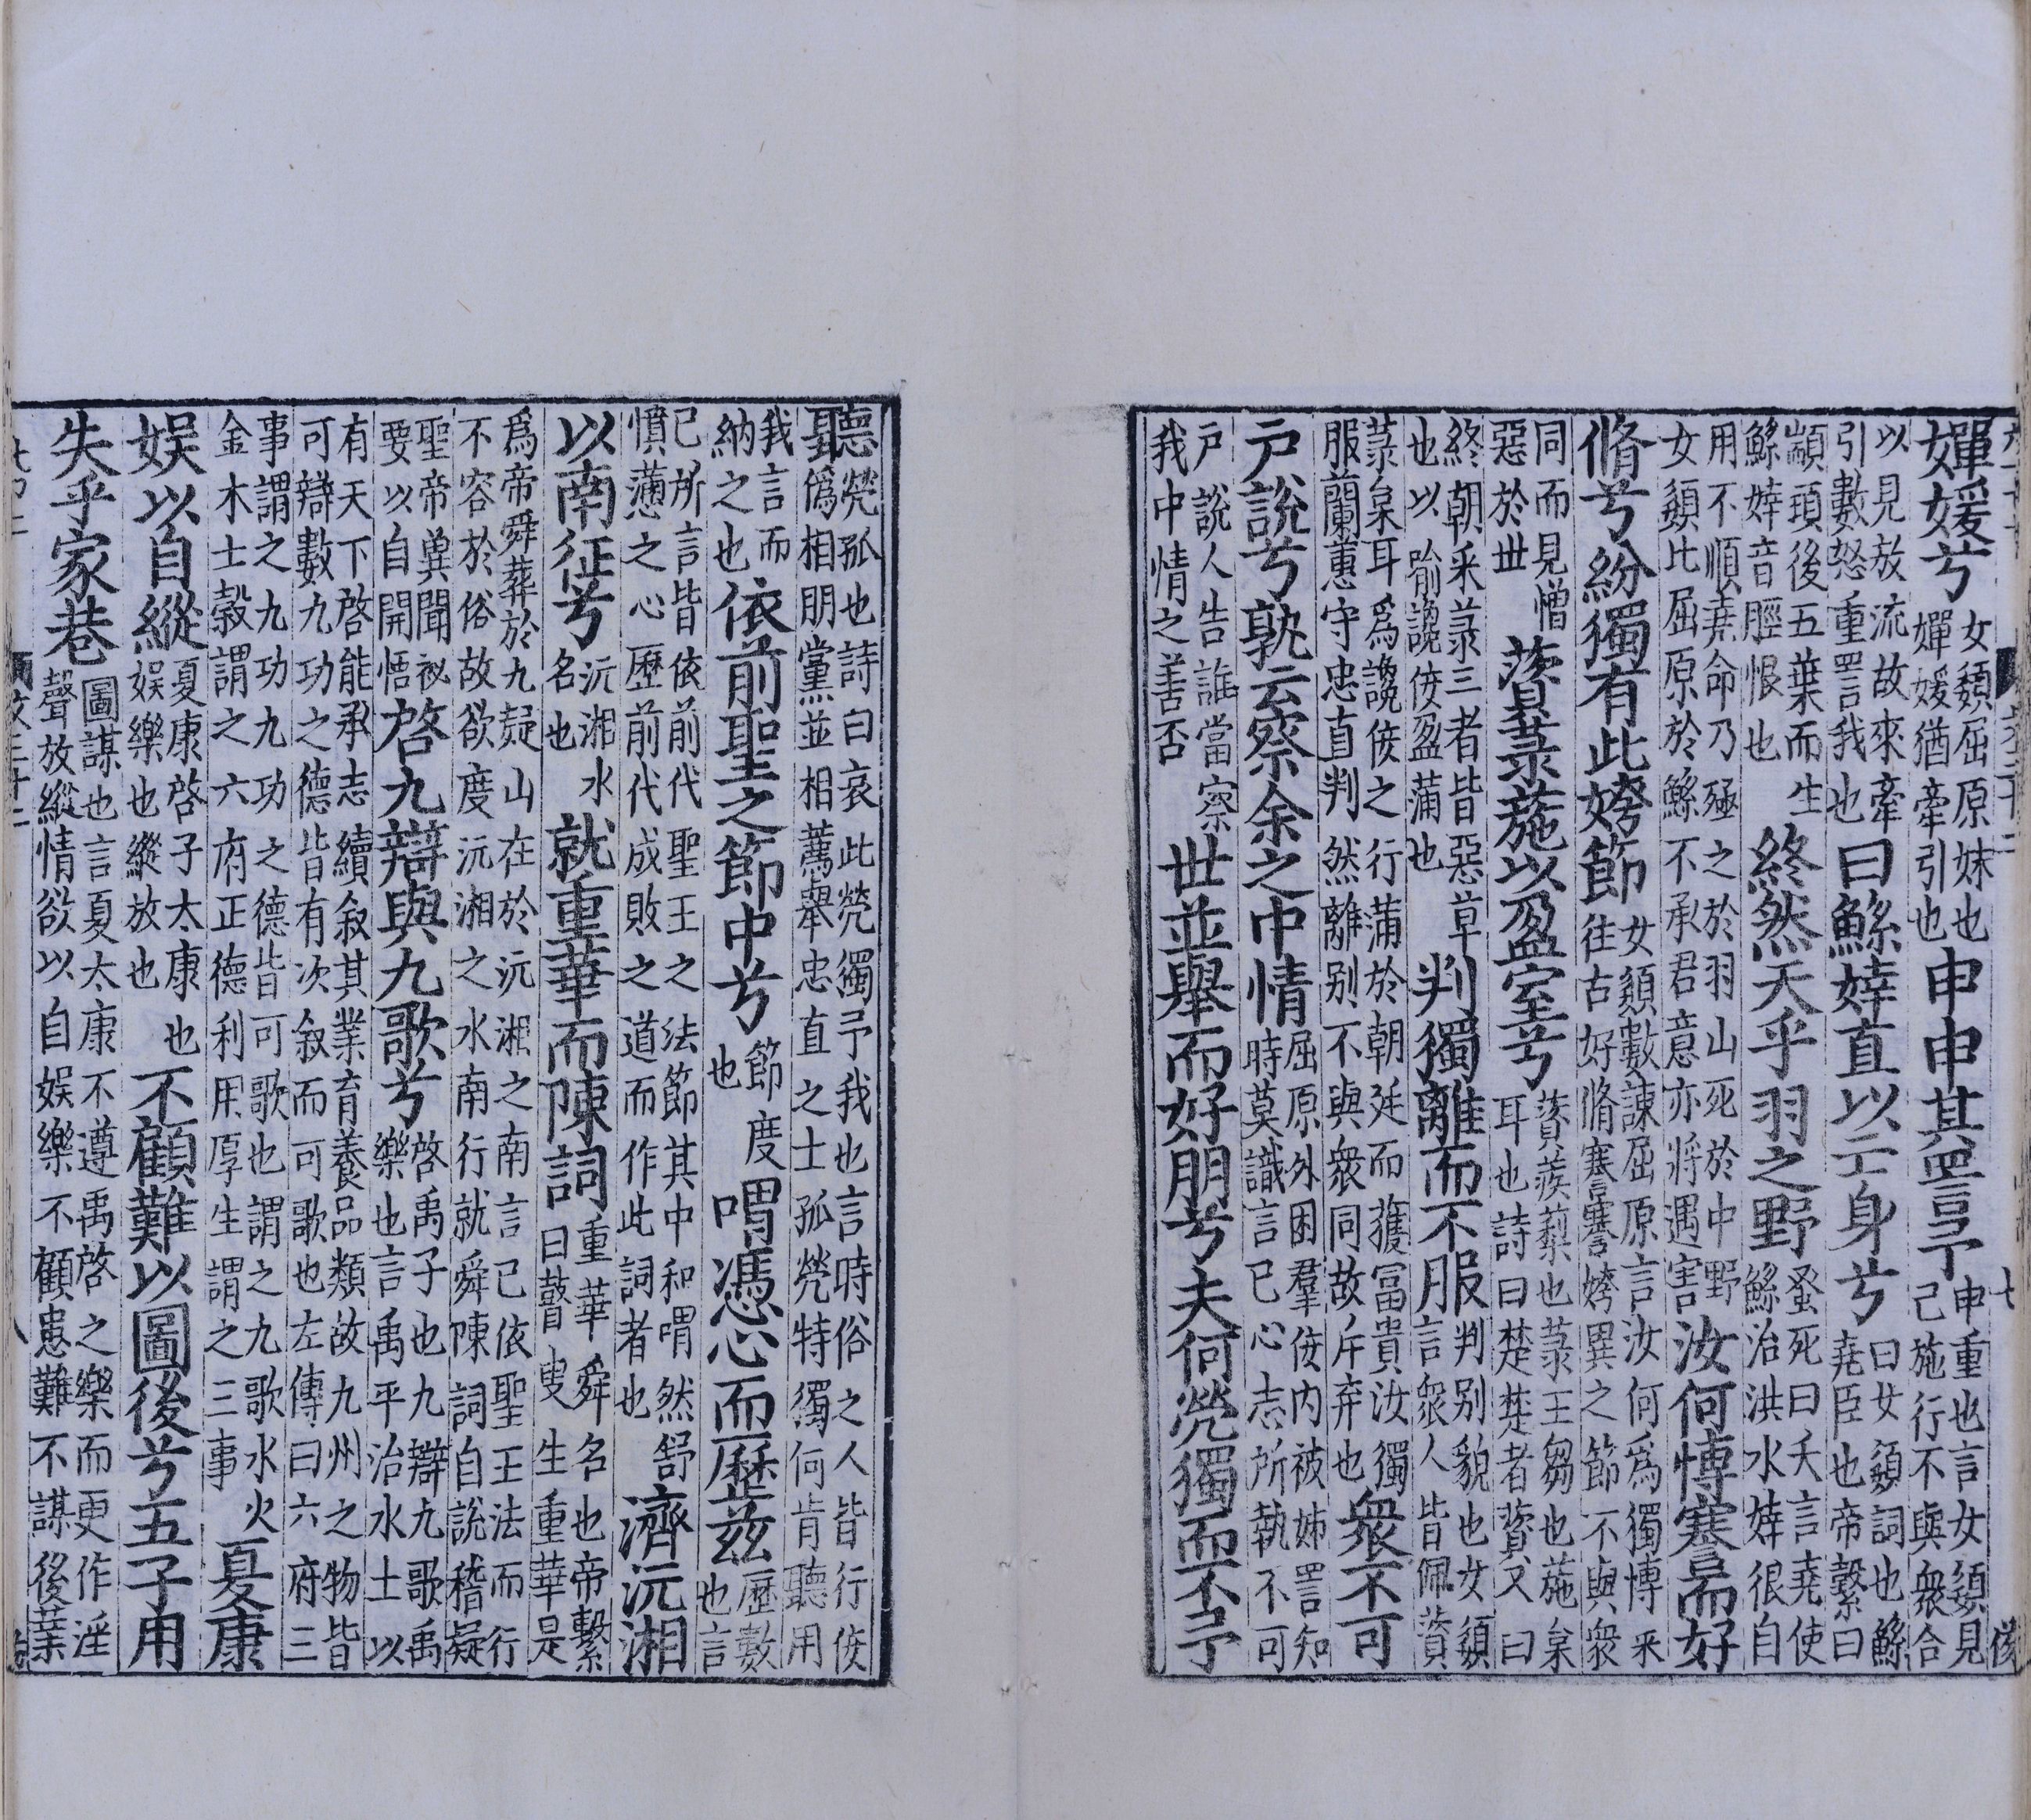 嬋媛兮女嬃屈原妹也嬋媛猶牽引也申申其詈予申重也言女嬃見己施行不與衆合
以見放流故來牽引數怒重詈我也曰鮌婞直以亡身兮曰女嬃詞也鮌堯臣也帝繫曰
顓頊後五葉而生鮌婞音脛恨也終然夭乎羽之野蚤死曰夭言堯使鮌治洪水婞很自
用不順堯命乃殛之於羽山死於中野女嬃比屈原於鮌不承君意亦將遇害汝何博謇而好
脩兮紛獨有此姱節女嬃數諫屈原言汝何爲獨博采往古好脩謇謇姱異之節不與衆
同而見憎惡於世薋菉葹以盈室兮薋蒺藜也菉王芻也葹枲耳也詩曰楚楚者薋又曰
終朝采菉三者皆惡草也以喻讒佞盈蒲也判獨離而不服判别貌也女嬃言衆人皆佩薋
菉枲耳爲讒佞之行蒲於朝廷而獲冨貴汝獨服蘭蕙守忠直判然離别不與衆同故斥弃也衆不可
戶說兮孰云察余之中情屈原外困羣佞内被姊詈知時莫識言己心志所執不可
戶說人告誰當察我中情之善否世並舉而好朋兮夫何煢獨而不予
聽煢孤也詩曰哀此煢獨予我也言時俗之人皆行佞僞相朋黨並相薦舉忠直之士孤煢特獨何肯聽用
我言而納之也依前聖之節中兮節度也喟憑心而歷茲歷數也言
己所言皆依前代聖王之法節其中和喟然舒憤懣之心歷前代成敗之道而作此詞者也濟沅湘
以南征兮沅湘水名也就重華而陳詞重華舜名也帝繫曰瞽叟生重華是
爲帝舜葬於九疑山在於沅湘之南言己依聖王法而行不容於俗故欲度沅湘之水南行就舜陳詞自說稽疑
聖帝冀聞祕要以自開悟啓九辯與九歌兮啓禹子也九辯九歌禹樂也言禹平治水土以
有天下啓能承志續叙其業育養品類故九州之物皆可辯數九功之德皆有次叙而可歌也左傳曰六府三
事謂之九功九功之德皆可歌也謂之九歌水火金木土穀謂之六府正德利用厚生謂之三事夏康
娱以自縱夏康啓子太康也娱樂也縱放也不顧難以圖後兮五子用
失乎家巷圖謀也言夏太康不遵禹啓之樂而更作淫聲放縱情欲以自娱樂不顧患難不謀後葉